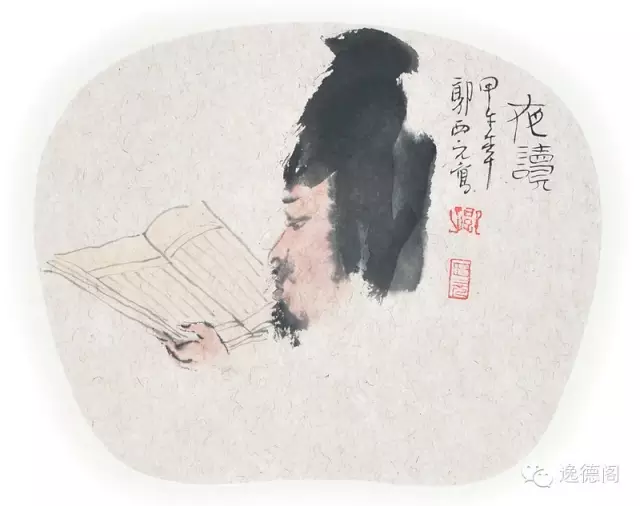 夜讀
甲午年
郭西元寫
郭
西元
逸德阁